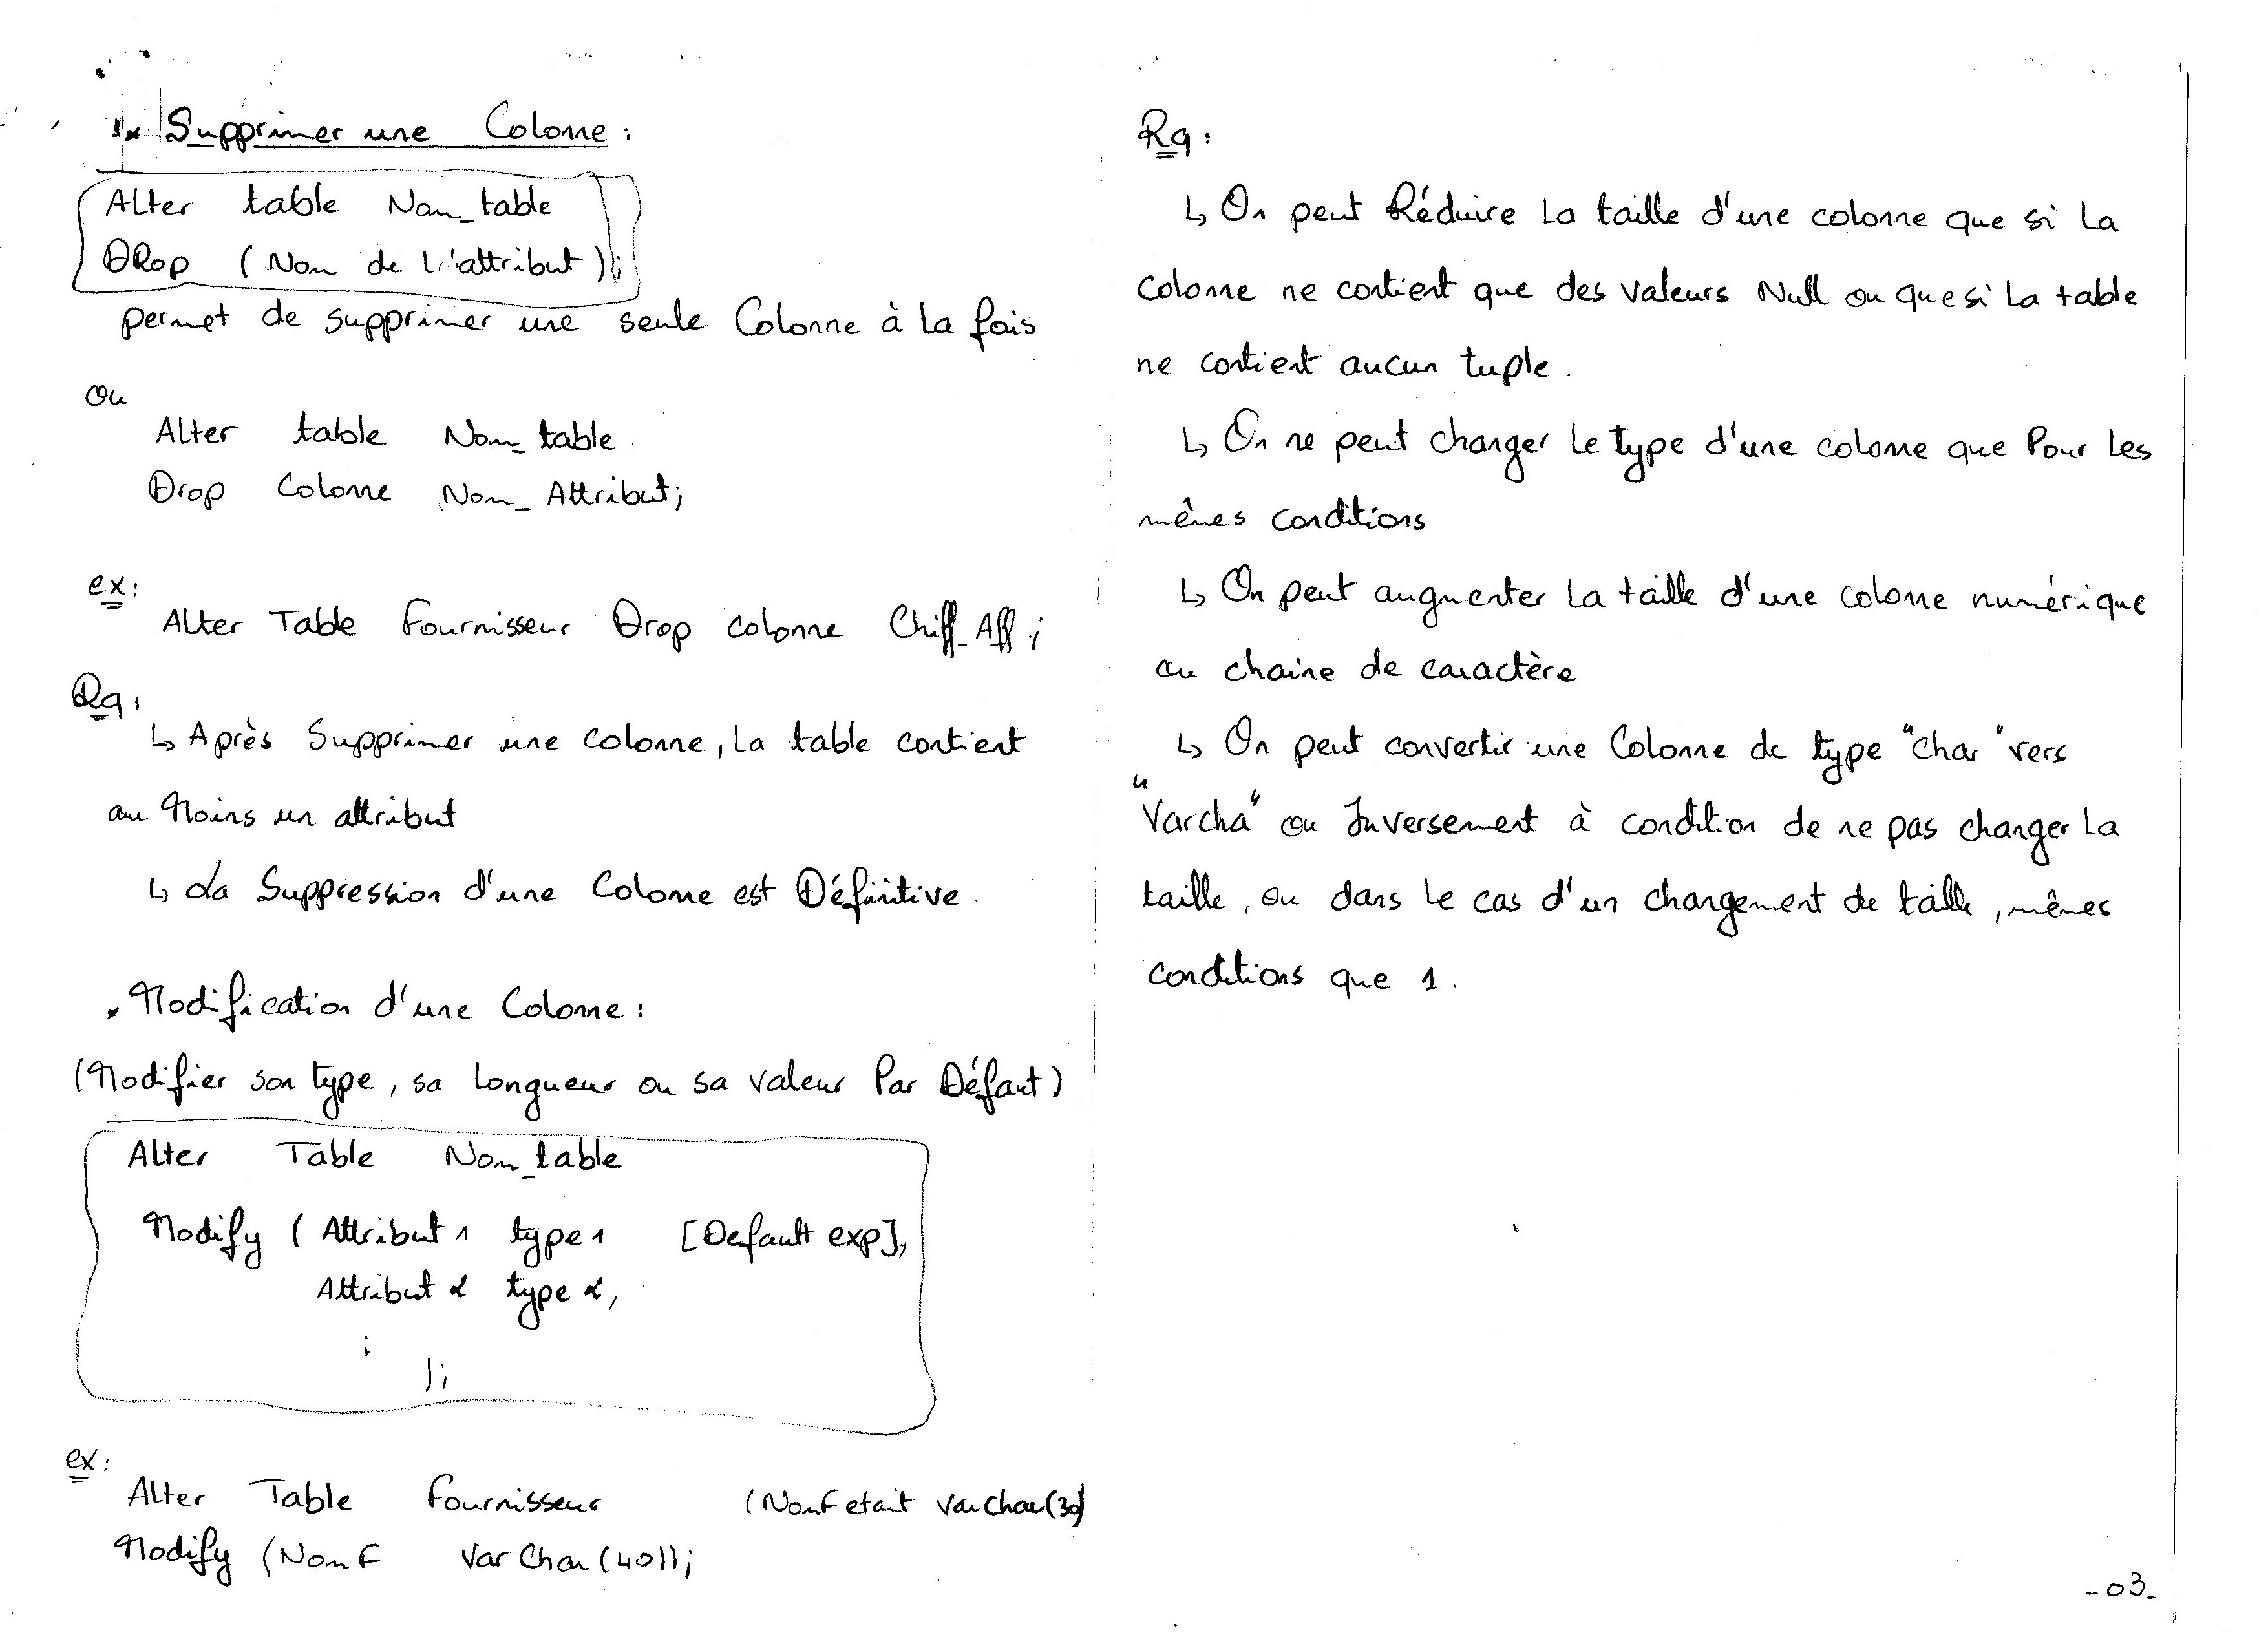 * Supprimer une Colonne :
Alter table Nom_table
DRop (Nom de l'attribut);
permet de supprimer une seule Colonne à la fois
Ou
Alter table Nom_table
Drop Colonne Nom_Attribut;
ex:
Alter Table Fournisseur Drop colonne Chiff_Aff;
Rq:
↳ Après Supprimer une colonne, la table contient
au Moins un attribut
↳ La Suppression d'une Colonne est Définitive.
* Modification d'une Colonne :
(Modifier son type, sa longueur ou sa valeur Par Défaut)
Alter Table Nom_table
Modify ( Attribut 1 type 1 [Default exp],
Attribut 2 type 2,
:
);
ex:
Alter Table Fournisseur (NomF etait Varchar(30)
Modify (NomF VarChar(40));
Rq:
↳ On peut Réduire la taille d'une colonne que si la
colonne ne contient que des valeurs Null ou que si la table
ne contient aucun tuple.
↳ On ne peut changer le type d'une colonne que Pour les
mêmes conditions
↳ On peut augmenter la taille d'une colonne numérique
ou chaine de caractère
↳ On peut convertir une Colonne de type "char" vers
"Varcha" ou Inversement à condition de ne pas changer la
taille, ou dans le cas d'un changement de taille, mêmes
conditions que 1.
-03-